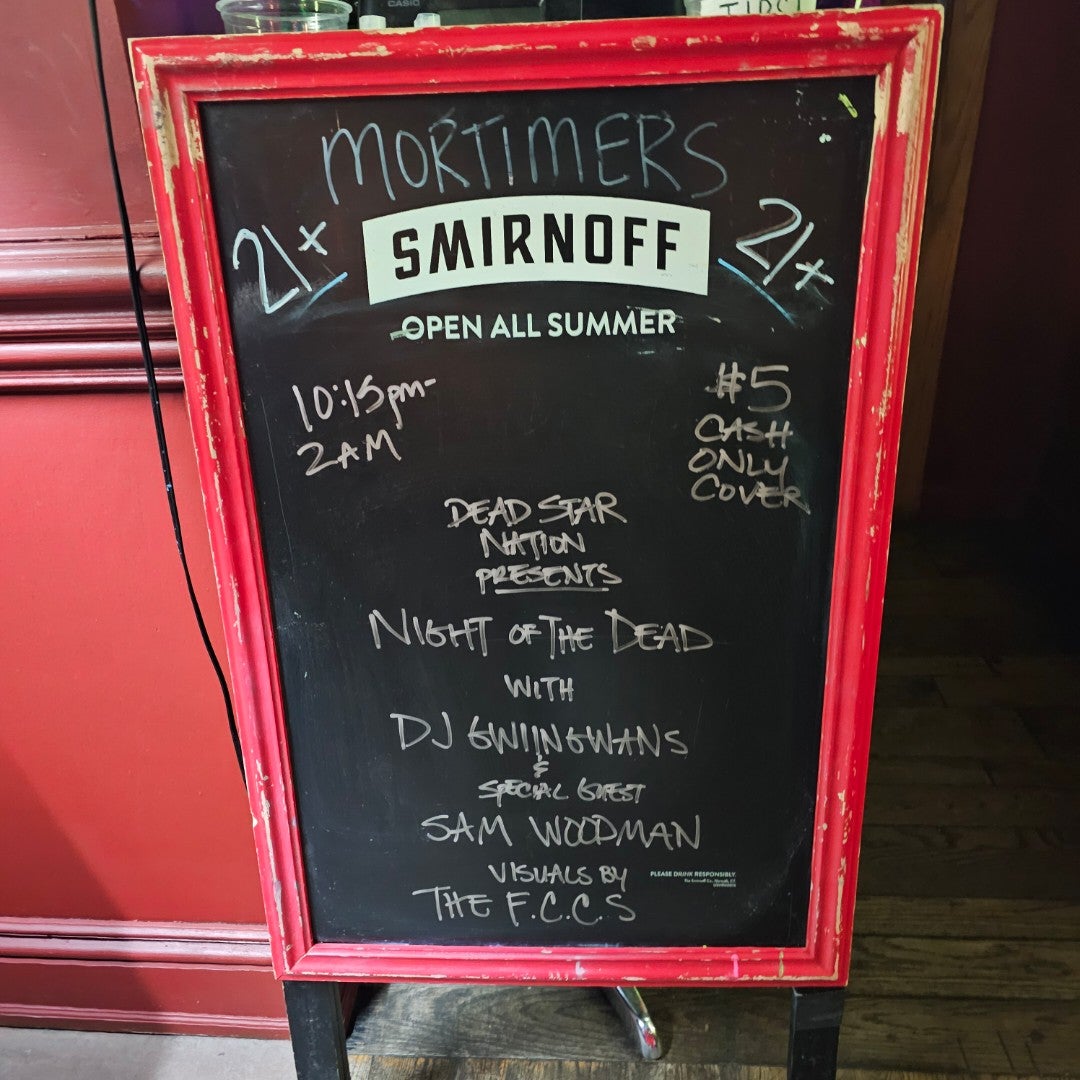 CASIO
TIPS
MORTIMERS
21+
SMIRNOFF
21+
OPEN ALL SUMMER
10:15pm-
2AM
#5
CASH
ONLY
COVER
DEAD STAR
NATION
PRESENTS
NIGHT OF THE DEAD
WITH
DJ GWIINGWANS
&
SPECIAL GUEST
SAM WOODMAN
VISUALS BY
PLEASE DRINK RESPONSIBLY.
THE F.C.C.S